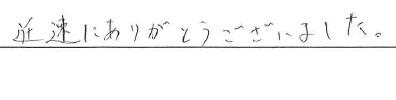 迅速にありがとうございました。